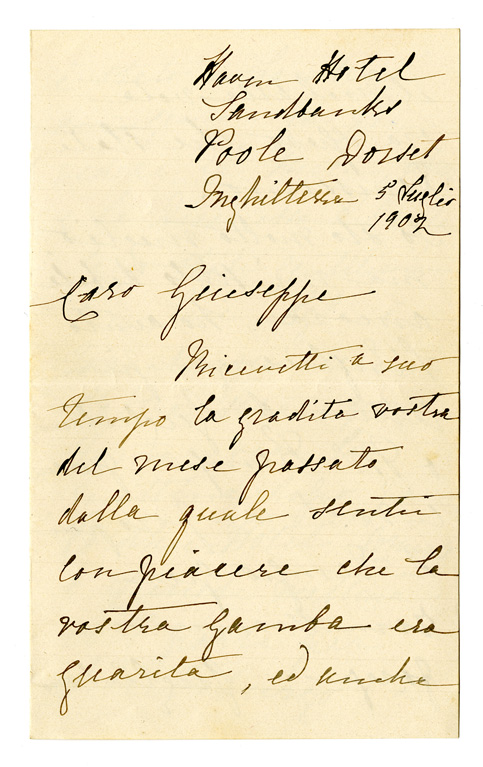 Haven Hotel
Sandbanks
Poole Dorset
Inghilterra 5 Luglio
1902
Caro Giuseppe
Ricevetti a suo
tempo la gradita vostra
del mese passato
dalla quale sentii
con piacere che la
vostra gamba era
guarita, ed anche